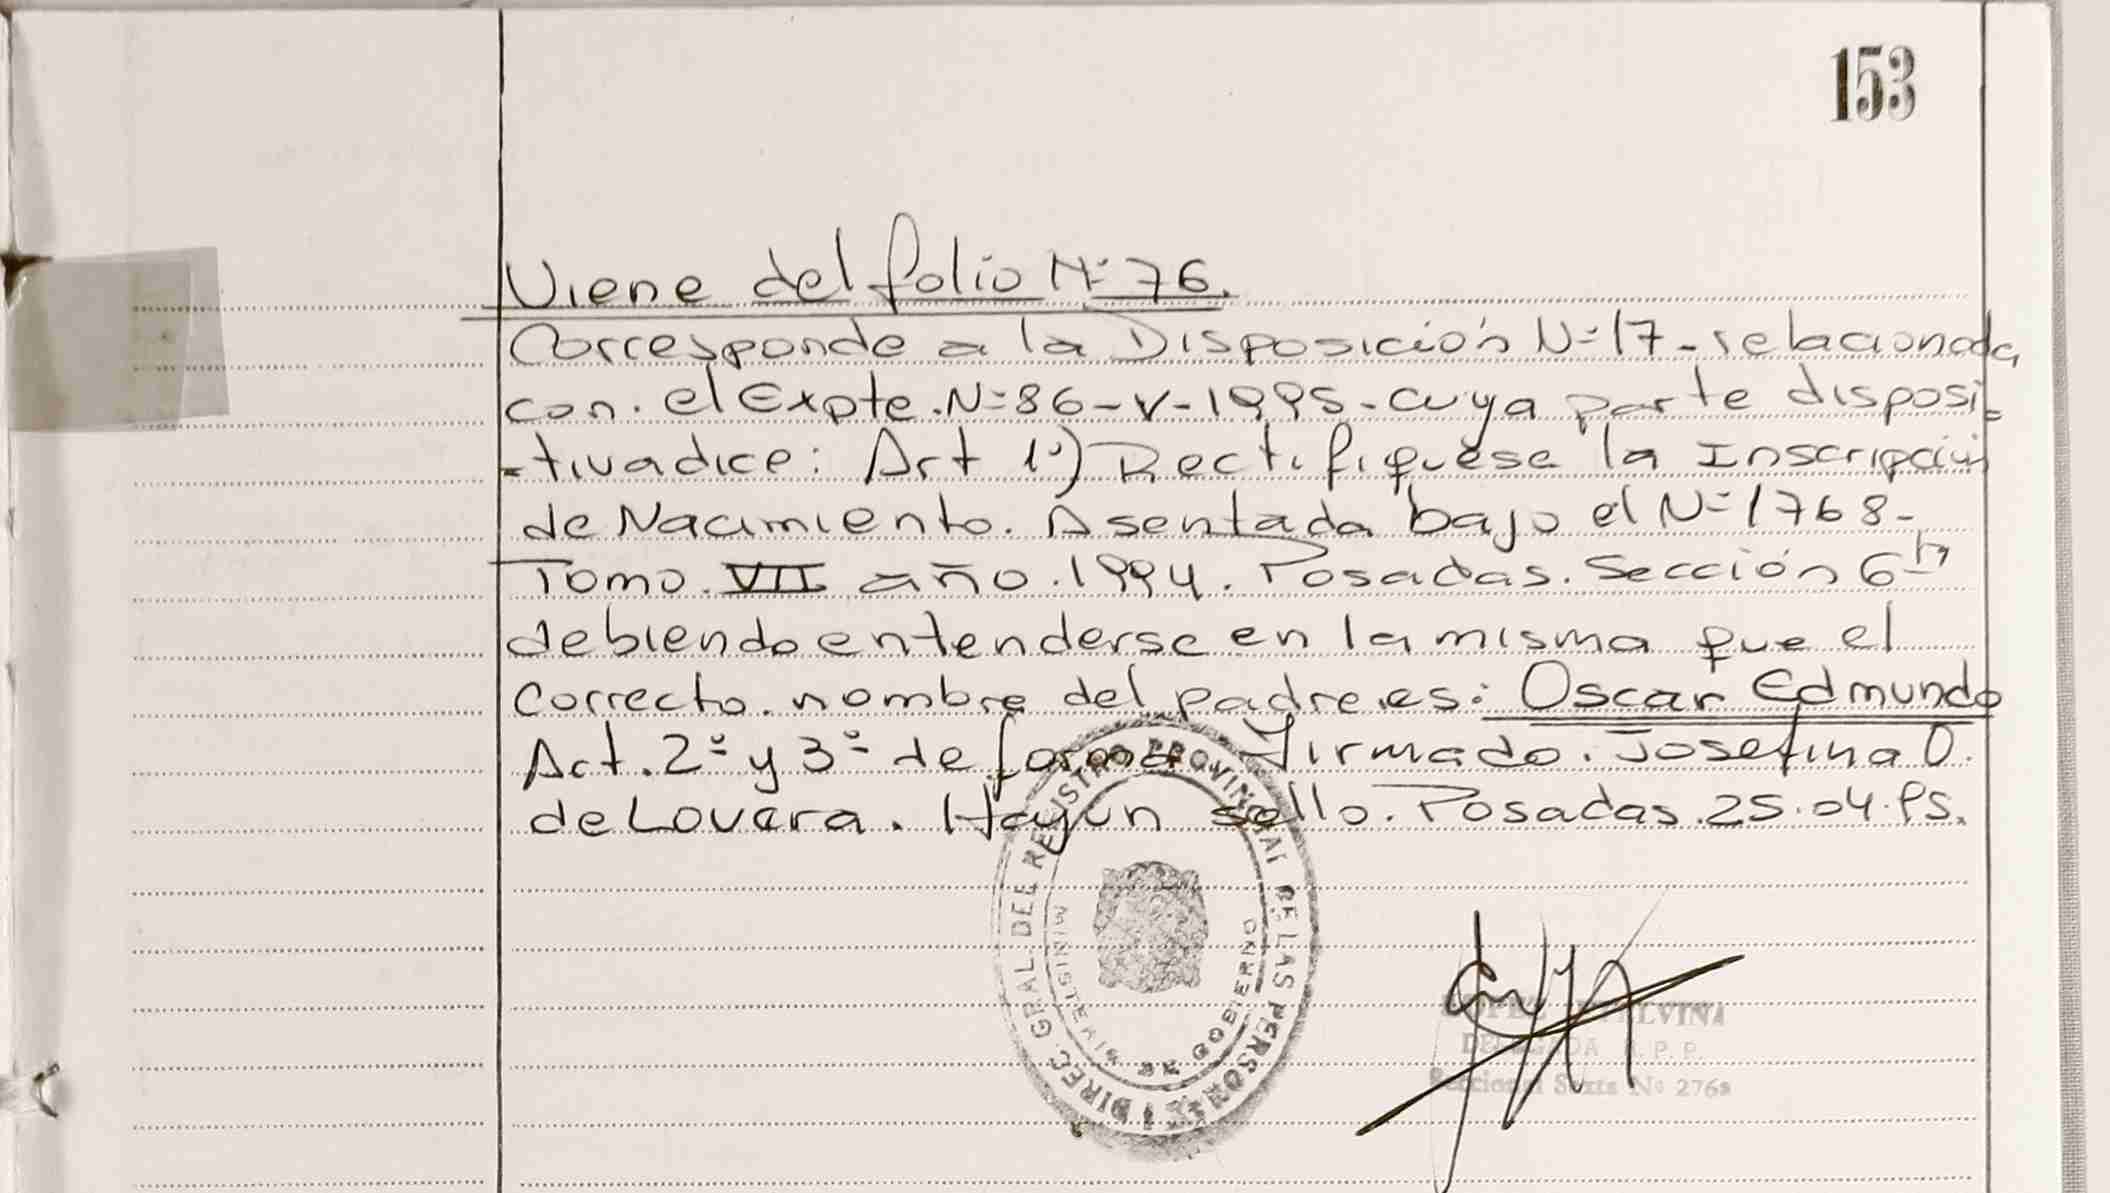 153
Viene del folio Nº 76.
Corresponde a la Disposición Nº 17 - relacionada
con. el Expte. Nº 86 - V - 1995 - cuya parte disposi-
-tiva dice: Art 1º) Rectifiquese la Inscripción
de Nacimiento. Asentada bajo el Nº 1768 -
Tomo. VII año. 1994. Posadas. Sección 6ta
debiendo entenderse en la misma que el
correcto. nombre del padre es: Oscar Edmundo
Art. 2º y 3º de forma Firmado. Josefina O.
de Lovera. Hay un sello. Posadas. 25.04.95.
DIREC. GRAL. DEL REGISTRO PROVINCIAL DE LAS PERSONAS
MINISTERIO DE GOBIERNO
LOPEZ MALVINA
DELEGADA R. P. P.
Seccional Sexta Nº 2768